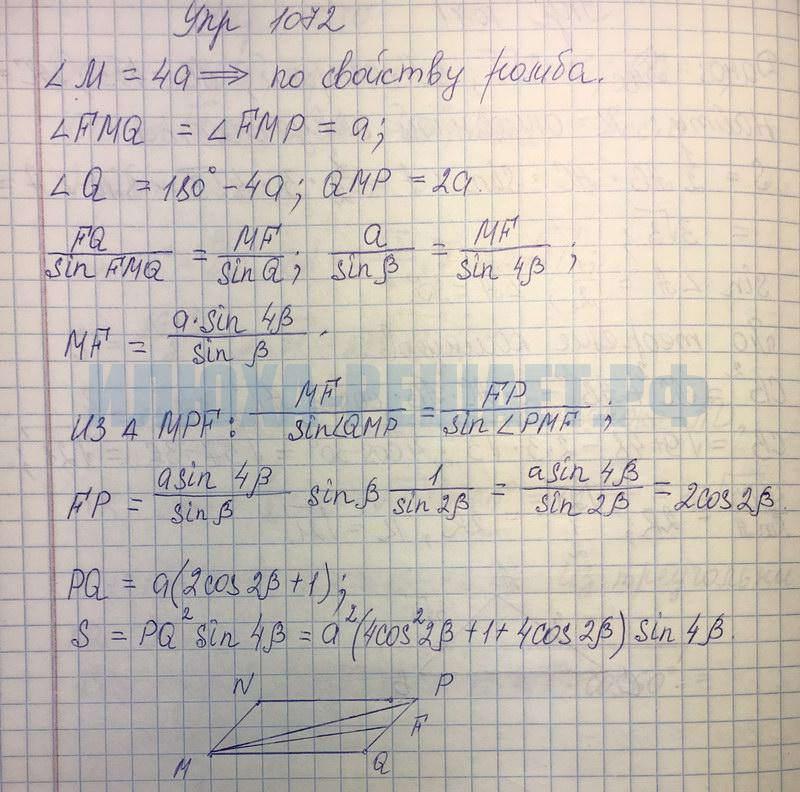 Упр 1072
∠M = 4a ⟹ по свойству ромба.
∠FMQ = ∠FMP = a;
∠Q = 180° - 4a; QMP = 2a.
FQ/sin FMQ = MF/sin Q; a/sin β = MF/sin 4β;
MF = a·sin 4β/sin β.
ИЗ Δ MPF: MF/sin∠QMP = FP/sin ∠PMF;
FP = a sin 4β/sin β sin β 1/sin 2β = a sin 4β/sin 2β = 2cos 2β.
PQ = a(2cos 2β + 1);
S = PQ² sin 4β = a²(4cos²2β + 1 + 4cos 2β) sin 4β.
N P
F
M Q
ИЛЮХА-РЕШАЕТ.РФ